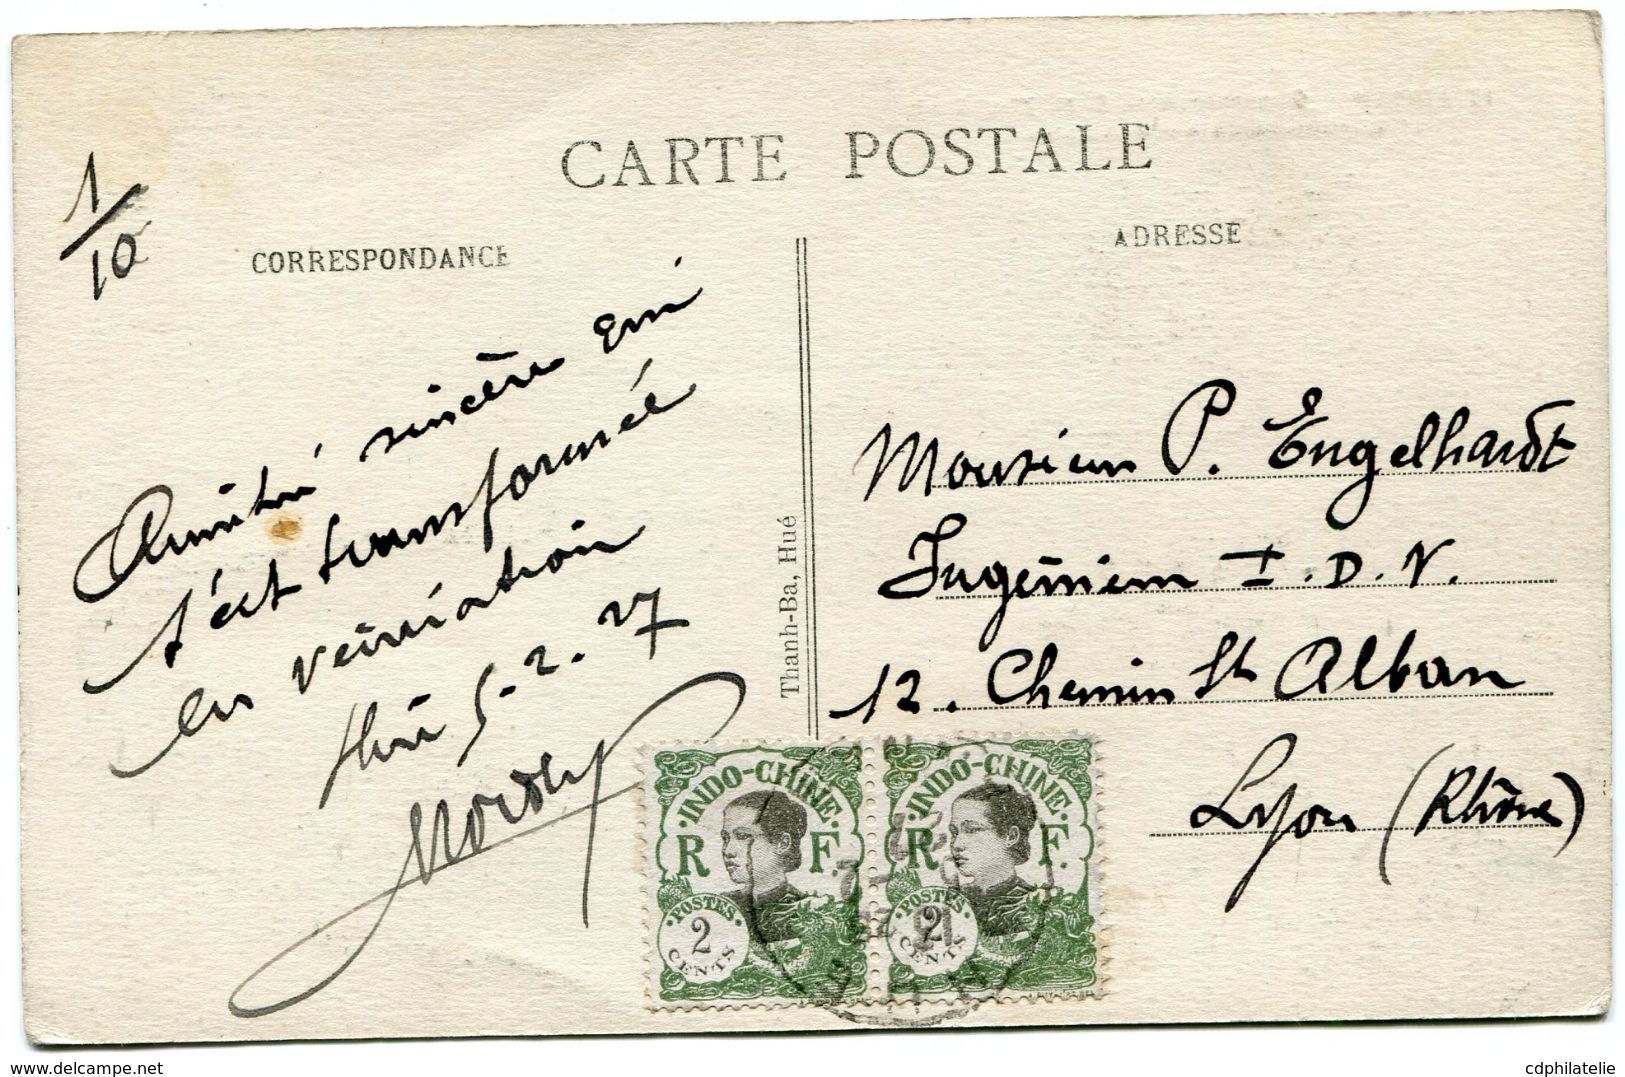 CARTE POSTALE
1/10
CORRESPONDANCE
Amitié sincère qui
s'est transformée
en vénération
Hué 5.2.27
ADRESSE
Thanh-Ba, Hué
Monsieur P. Engelhardt
Ingénieur I.D.N.
12. Chemin St Alban
Lyon (Rhône)
INDO-CHINE
R F.
POSTES
2
CENTS
INDO-CHINE
R F.
POSTES
2
CENTS
https://www.delcampe.net
cdphilatelie